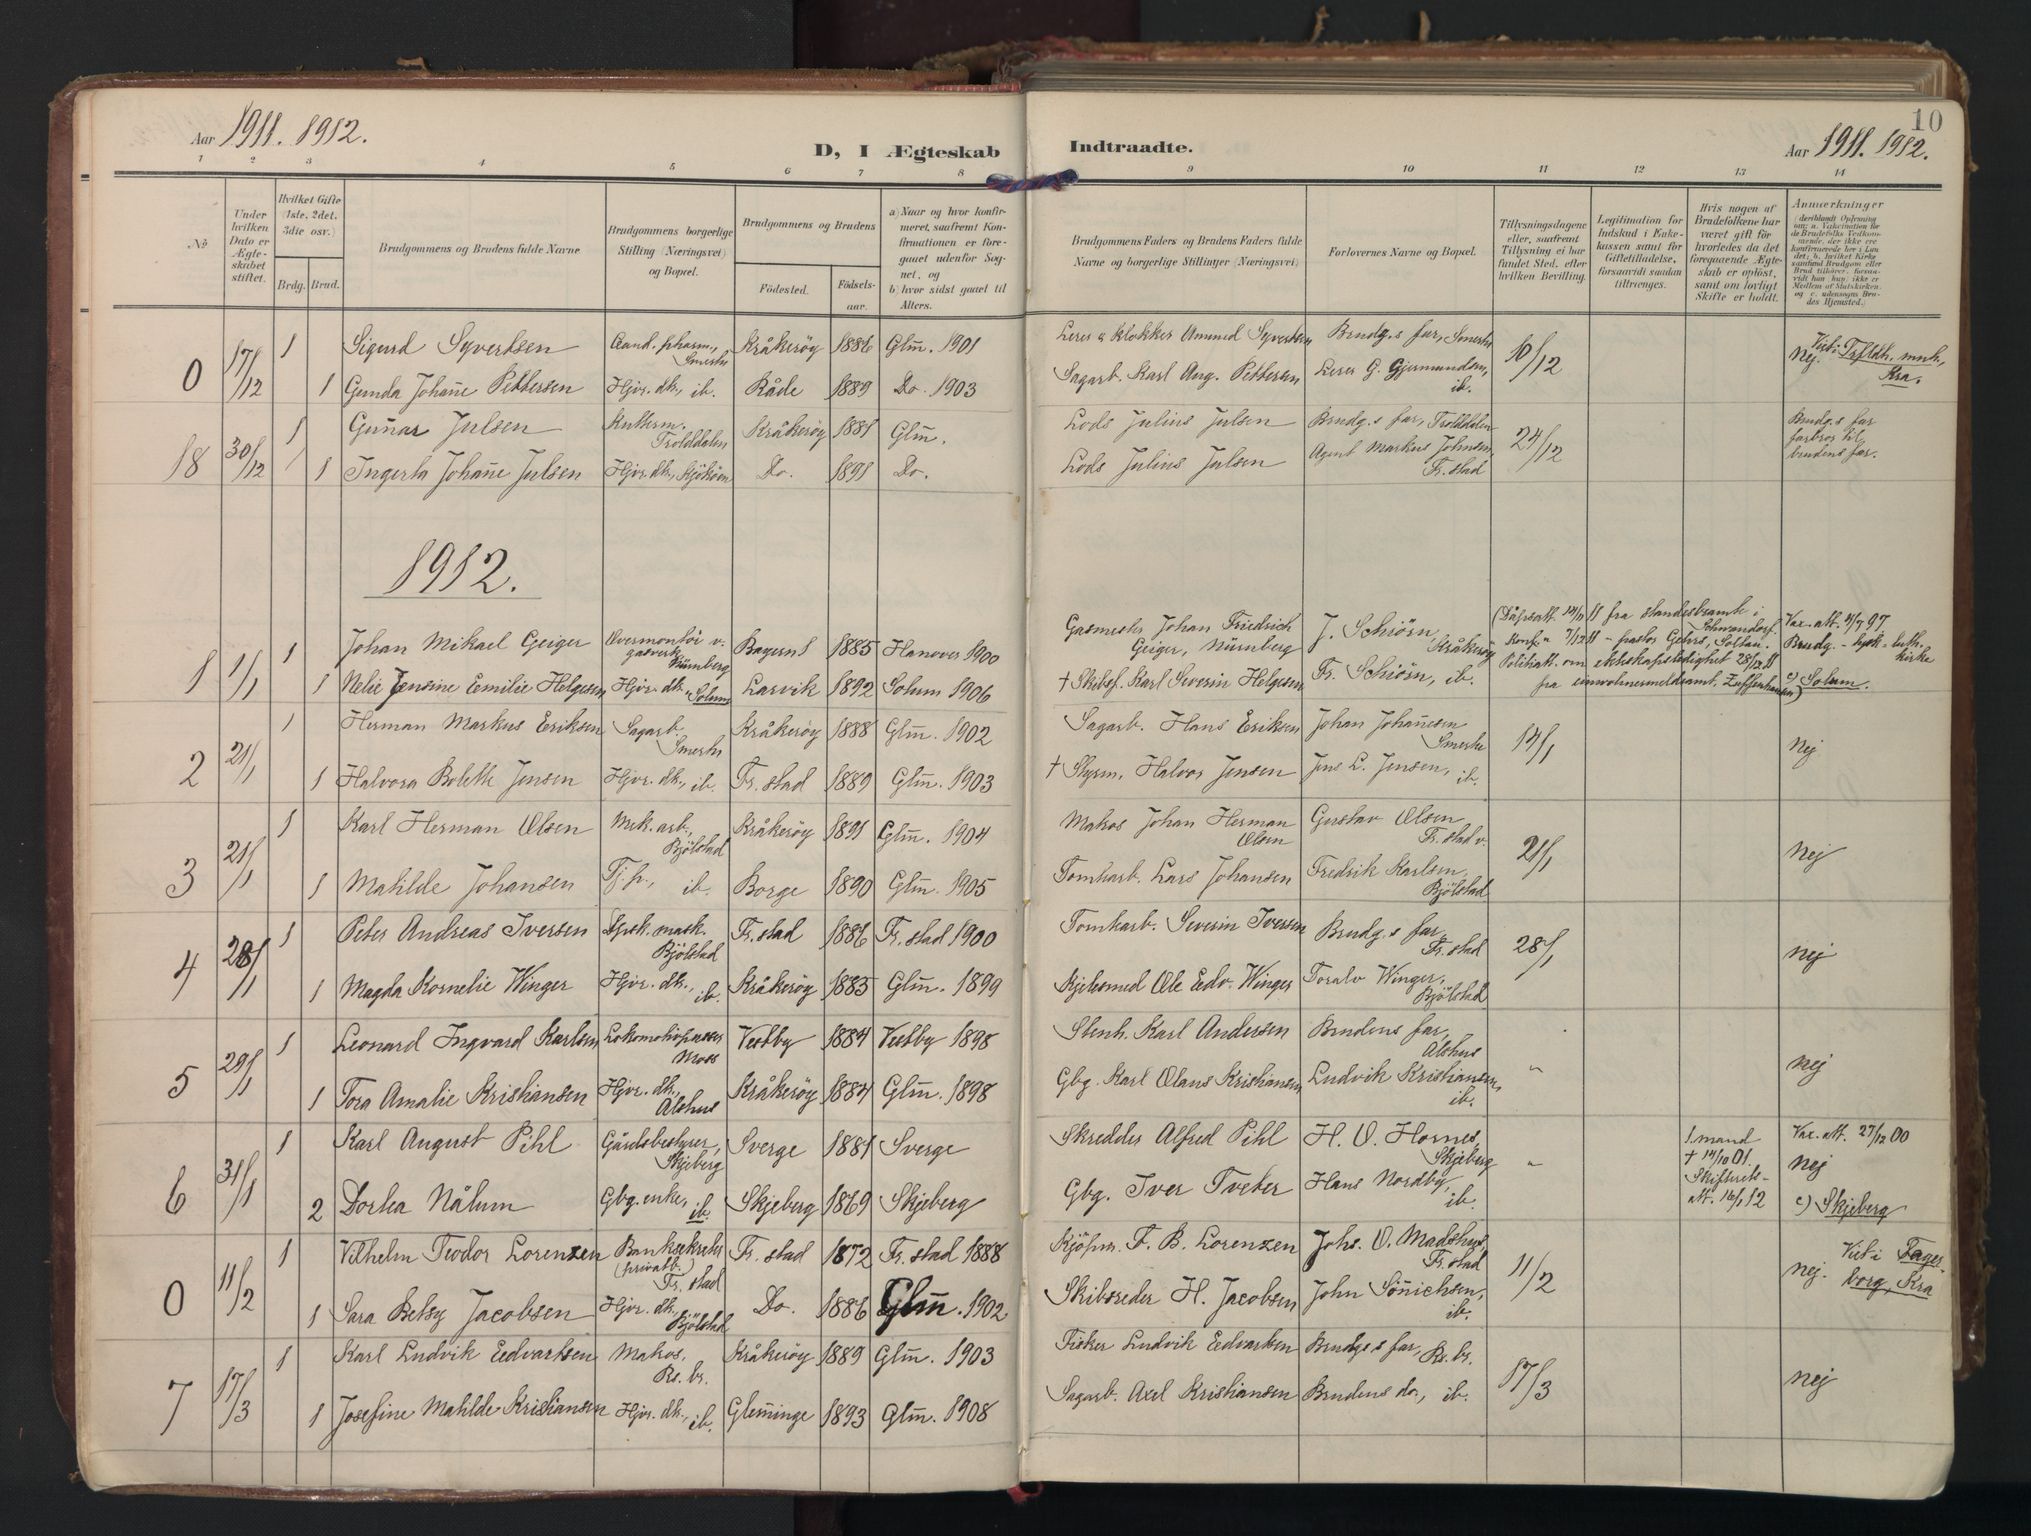 Aar 1911. 1912.
D, I Ægteskab
Indtraadte.
Aar 1911. 1912.
10
1 2 3 4 5 6 7 8 9 10 11 12 13 14
No
Under hvilken Dato er Ægteskabet stiftet.
Hvilket Gifte (1ste, 2det, 3die osv.)
Brdg. Brud.
Brudgommens og Brudens fulde Navne
Brudgommens borgerlige Stilling (Næringsvei) og Bopæl.
Brudgommens og Brudens
Fødested. Fødselsaar.
a) Naar og hvor konfirmeret, saafremt Konfirmationen er foregaaet udenfor Sognet, og
b) hvor sidst gaaet til Alters.
Brudgommens Faders og Brudens Faders fulde Navne og borgerlige Stillinger (Næringsvei)
Forlovernes Navne og Bopæl.
Tillysningsdagene eller, saafremt Tillysning ei har fundet Sted, efter hvilken Bevilling.
Legitimation for Indskud i Enkekassen samt for Giftetilladelse, forsaavidt saadan tiltrænges.
Hvis nogen af Brudefolkene har været gift før hvorledes da det foregaaende Ægteskab er opløst, samt om lovligt Skifte er holdt.
Anmærkninger
0 17/12 1 Sigurd Syvertsen Cand. pharm., Smerte Kråkerøy 1886 Glm. 1901 Lærer & klokker Amund Syvertsen Brudg.s far, Smerte 10/12 Nej. Viet i Trfldh. mnh., Kra.
1 Gunda Johanne Pettersen Hjvr. dt., ib. Råde 1889 Do. 1903 Sagarb. Karl Aug. Pettersen Lærer G. Gjermundsen, ib.
18 30/12 1 Gunnar Julsen Kutterm. Trolddalen Kråkerøy 1881 Glm. Lods Julius Julsen Brudg.s far, Trolddalen 24/12 Brudg.s far farbror til brudens far.
1 Ingerta Johanne Julsen Hjvr. dt., Kjøkøen Do. 1891 Do. Lods Julius Julsen Agent Markus Johnsen, Fr. stad
1912.
1 1/1 1 Johan Mikael Geiger Overmontør v. gasverk Nürnberg Bayern 1885 Hanover 1900 Gasmester Johan Friedrich Geiger, Nürnberg J. Schiørn, Kråkerøy (Dåpsatt. 14/12 11 fra standesbeamte i Schwandorf. Vax. att. 4/7 97
Konf. " 7/12 11 - pastor Gehrs, Soltau. Brudg. - tysk-luth. kirke
1 Nelie Jensine Emilie Helgesen Hjvr. dt., Solum Larvik 1892 Solum 1906 † Skibsf. Karl Severin Helgesen Fr. Schiørn, ib. Politiatt. om ekteskapsledighet 28/12 11 fra einwohnermeldeamt. Zuffenhausen) c) Solum.
2 21/1 1 Herman Markus Eriksen Sagarb. Smerte Kråkerøy 1888 Glm. 1902 Sagarb. Hans Eriksen Johan Johannesen Smerte 14/1 Nej
1 Halvora Bolette Jensen Hjvr. dt., ib. Fr. stad 1889 Glm. 1903 † Styrm. Halvor Jensen Jens L. Jensen, ib.
3 21/1 1 Karl Herman Olsen Mek. arb., Bjölstad Kråkerøy 1891 Glm. 1904 Matros Johan Herman Olsen Gustav Olsen Fr. stad v. 21/1 Nej
1 Matilde Johansen Tj.p., ib. Borge 1890 Glm. 1905 Tomtarb. Lars Johansen Fredrik Karlsen, Bjölstad
4 28/1 1 Peter Andreas Iversen Bjölstad Fr. stad 1886 Fr. stad 1900 Tomtarb. Severin Iversen Brudg.s far, Fr. stad 28/1 Nej
1 Magda Kornelie Winger Hjvr. dt., ib. Kråkerøy 1885 Glm. 1899 Kjelesmed Ole Edv. Winger Toralv Winger, Bjölstad
5 29/1 1 Leonard Ingvard Karlsen Lokomotivpusser Moss Vestby 1884 Vestby 1898 Stenh. Karl Andersen Brudens far, Alshus " Nej
1 Tora Amalie Kristiansen Hjvr. dt., Alshus Kråkerøy 1884 Glm. 1898 Gbg. Karl Olaus Kristiansen Ludvik Kristiansen, ib.
6 31/1 1 Karl August Pihl Gårdsbestyrer, Skjeberg Sverge 1881 Sverge Skredder Alfred Pihl H. O. Hornes, Skjeberg " 1. mand † 14/10 01. Skifterets-att. 16/1 12 Vax. att. 27/12 00 Nej
2 Dortea Nålum Gbg. enke, ib. Skjeberg 1869 Skjeberg Gbg. Iver Tveter Hans Nordby, ib. c) Skjeberg
0 11/2 1 Vilhelm Teodor Lorenzen Banksekretær (privatb.) Fr. stad Fr. stad 1872 Fr. stad 1888 Kjöpm. F. B. Lorenzen Johs. O. Madshus, Fr. stad 11/2 Nej. Viet i Fagerborg, Kra
1 Sara Betsy Jacobsen Hjvr. dt., Bjölstad Do. 1886 Glm. 1902. Skibsreder H. Jacobsen John Sönichsen, ib.
7 17/3 1 Karl Ludvik Edvartsen Matros, Rs. br. Kråkerøy 1889 Glm. 1903 Fisker Ludvik Edvartsen Brudg.s far, Rs. br. 17/3 Nej
1 Josefine Matilde Kristiansen Hjvr. dt., ib. Glemminge 1893 Glm. 1908 Sagarb. Axel Kristiansen Brudens do., ib.